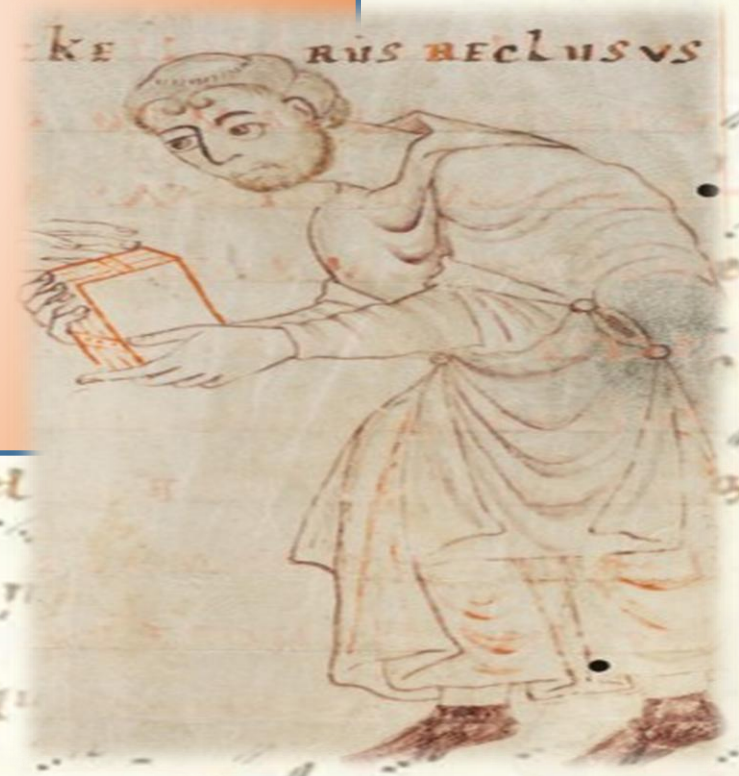 KE RUS RECLUSVS